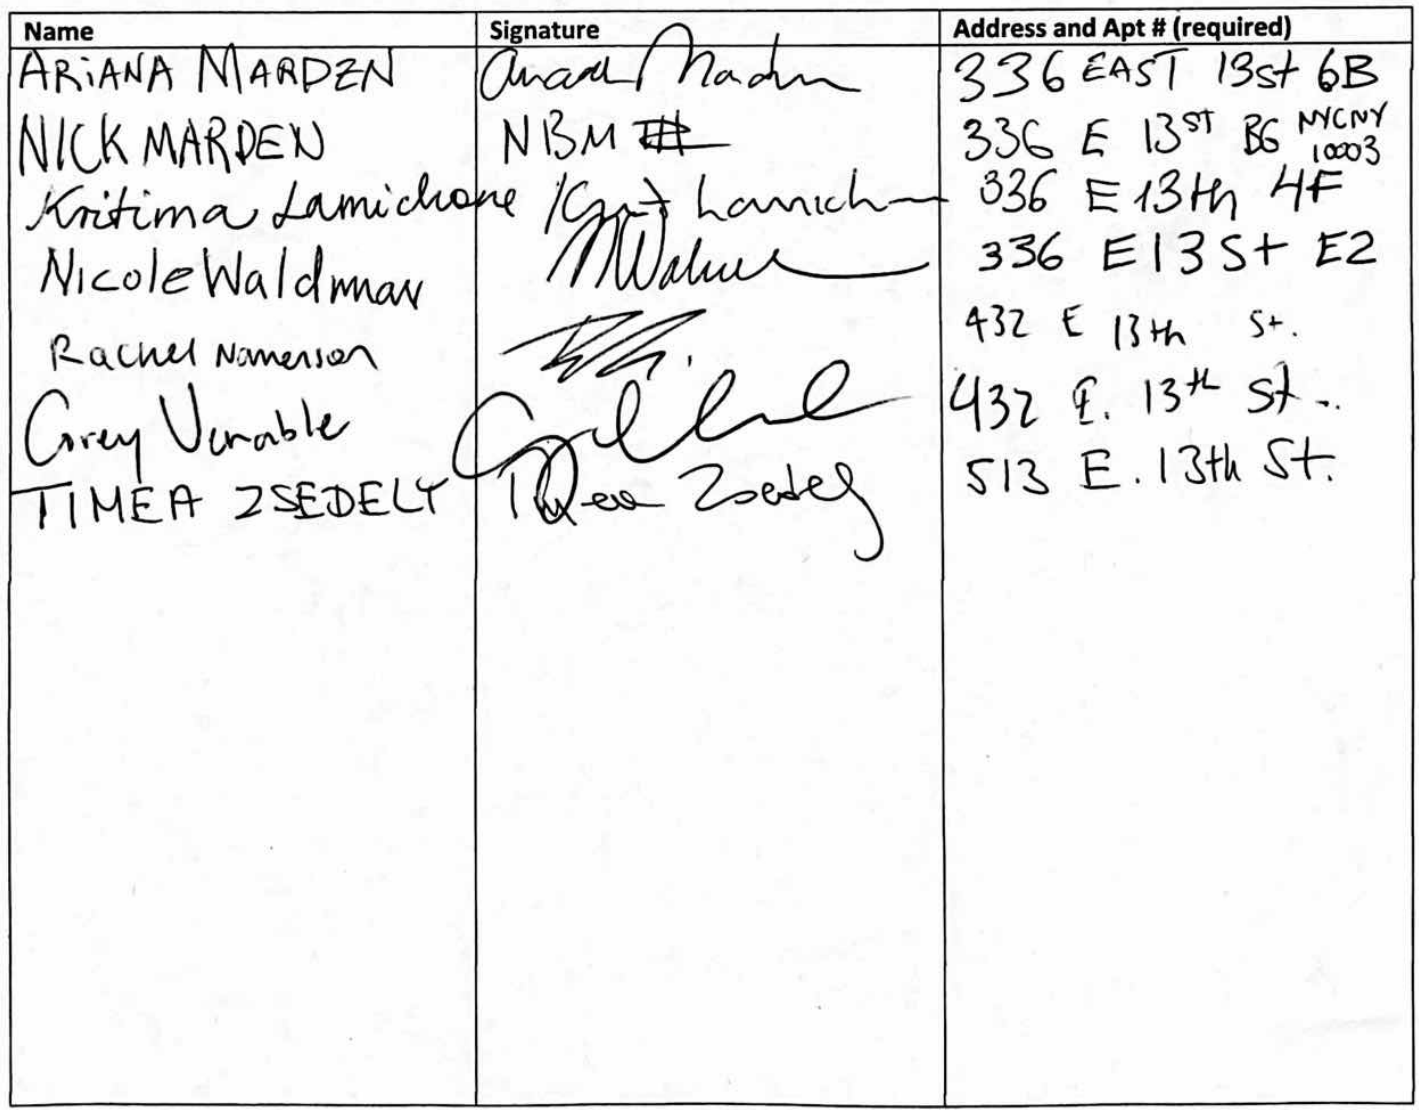 Name Signature Address and Apt # (required)
ARiANA MARDEN 336 EAST 13st 6B
NICK MARDEN NBM 336 E 13ST B6 NYC NY 10003
Kritima Lamichane 336 E 13th 4F
Nicole Waldman 336 E 13 St E2
Rachel Namerson 432 E 13th St.
Corey Venable 432 E. 13th St.
TIMEA ZSEDELY Timea Zsedely 513 E. 13th St.